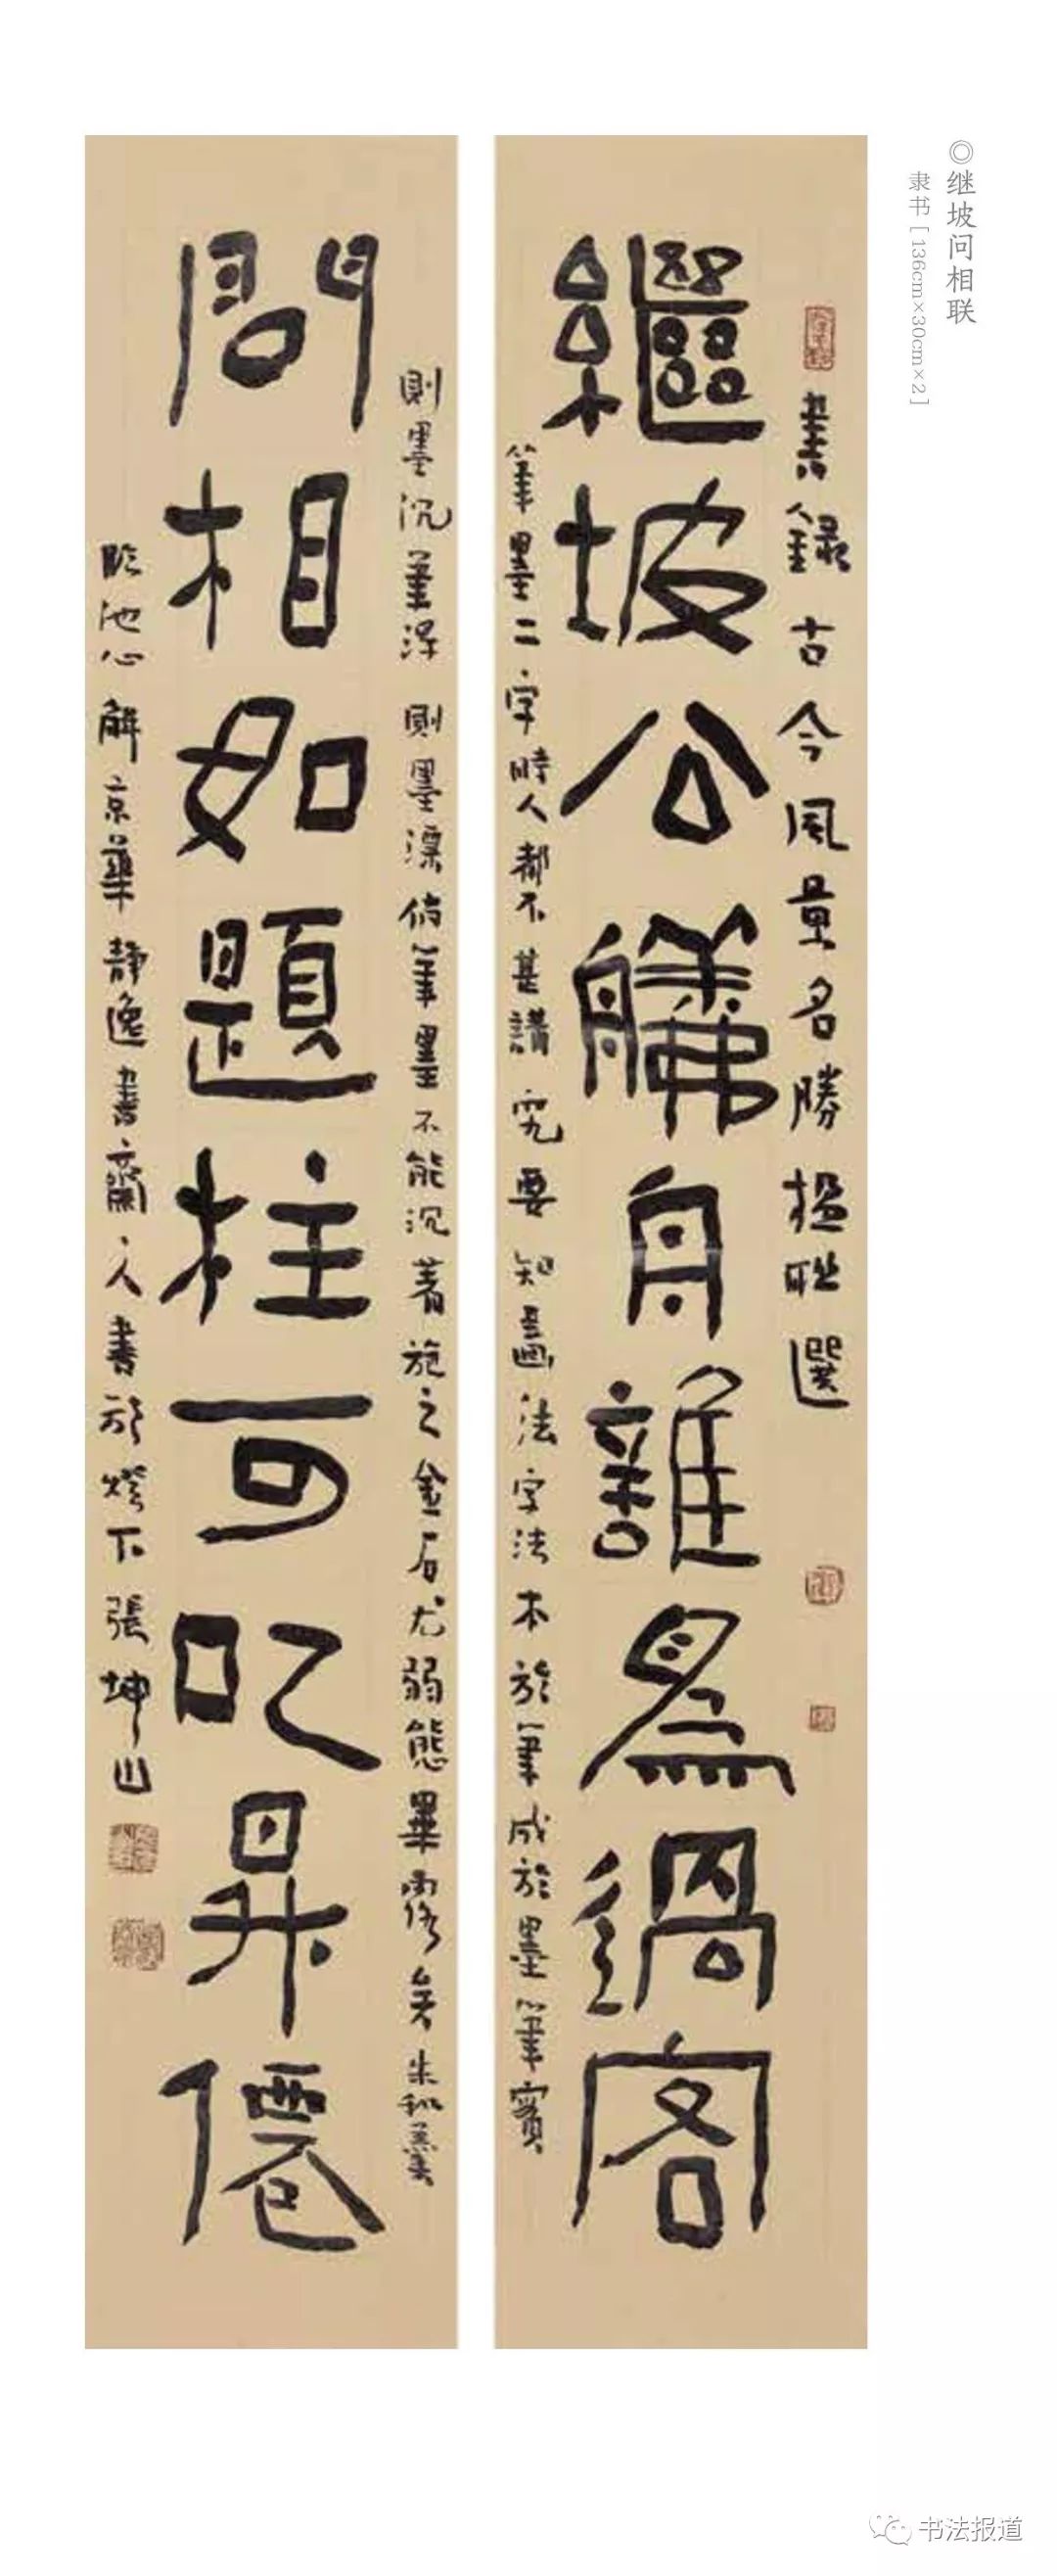 ◎继坡问相联
隶书［136cm×30cm×2］
書錄古今風景名勝楹聯選
繼坡公艤舟誰為過客
筆墨二字時人都不甚講究要知畫法字法本於筆成於墨筆實
則墨沉筆浮則墨漂倘筆墨不能沉著施之金石尤弱態畢露矣朱和羹
問相如題柱可㕥昇僊
臨池心解京華靜逸書齋丶人書於燈下張坤山
书法报道